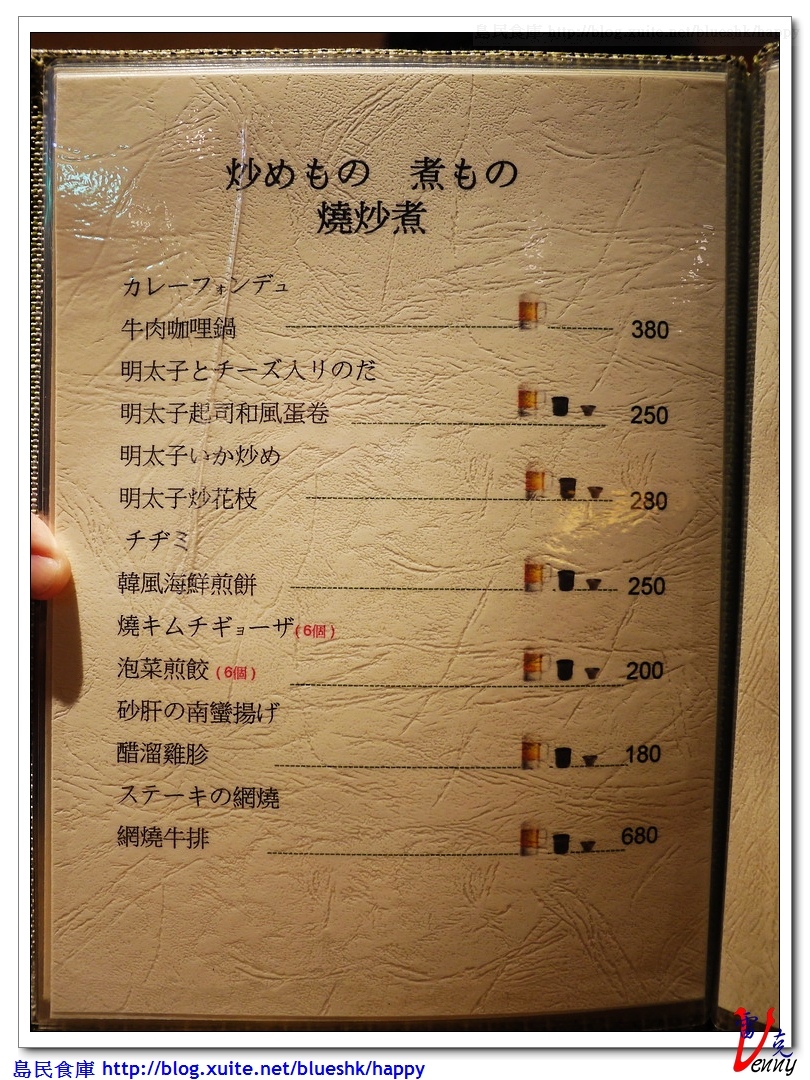 島民食庫 http://blog.xuite.net/blueshk/happy
炒めもの 煮もの
燒炒煮
カレーフォンデュ
牛肉咖哩鍋 380
明太子とチーズ入りのだ
明太子起司和風蛋卷 250
明太子いか炒め
明太子炒花枝 280
チヂミ
韓風海鮮煎餅 250
燒キムチギョーザ(6個)
泡菜煎餃 (6個) 200
砂肝の南蠻揚げ
醋溜雞胗 180
ステーキの網燒
網燒牛排 680
雷克
Venny
島民食庫 http://blog.xuite.net/blueshk/happy